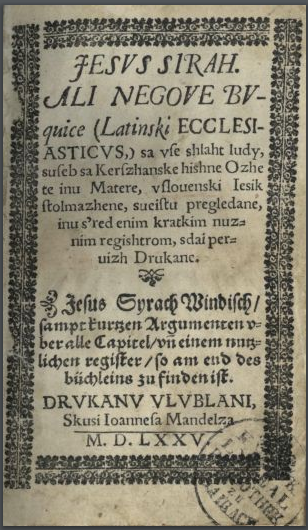 JESVS SIRAH.
ALI NEGOVE BV-
quice (Latinski ECCLESI-
ASTICVS,) sa vſe shlaht ludy,
suſeb sa Kerſzhanske hiſhne Ozhe
te inu Matere, vſlovenski Iesik
ſtolmazhene, sueiſtu pregledane,
inu s'red enim kratkim nuz-
nim regiſhtrom, sdai per-
uizh Drukane.
Jesus Syrach Windisch/
sampt kurtzen Argumenten v-
ber alle Capitel/ vñ einem nutz-
lichen register/ so am end des
büchleins zu finden ist.
DRVKANV VLVBLANI,
Skusi Ioannesa Mandelza
M. D. LXXV.